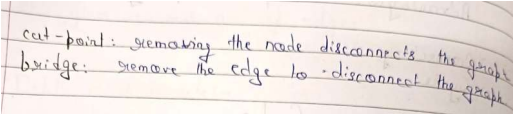 cut-point: removing the node disconnects the graph
bridge: remove the edge to disconnect the graph